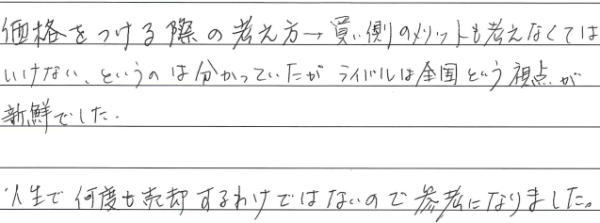 価格をつける際の考え方→買い側のメリットも考えなくては
いけない、というのは分かっていたが ライバルは全国という視点が
新鮮でした。
人生で何度も売却するわけではないので参考になりました。